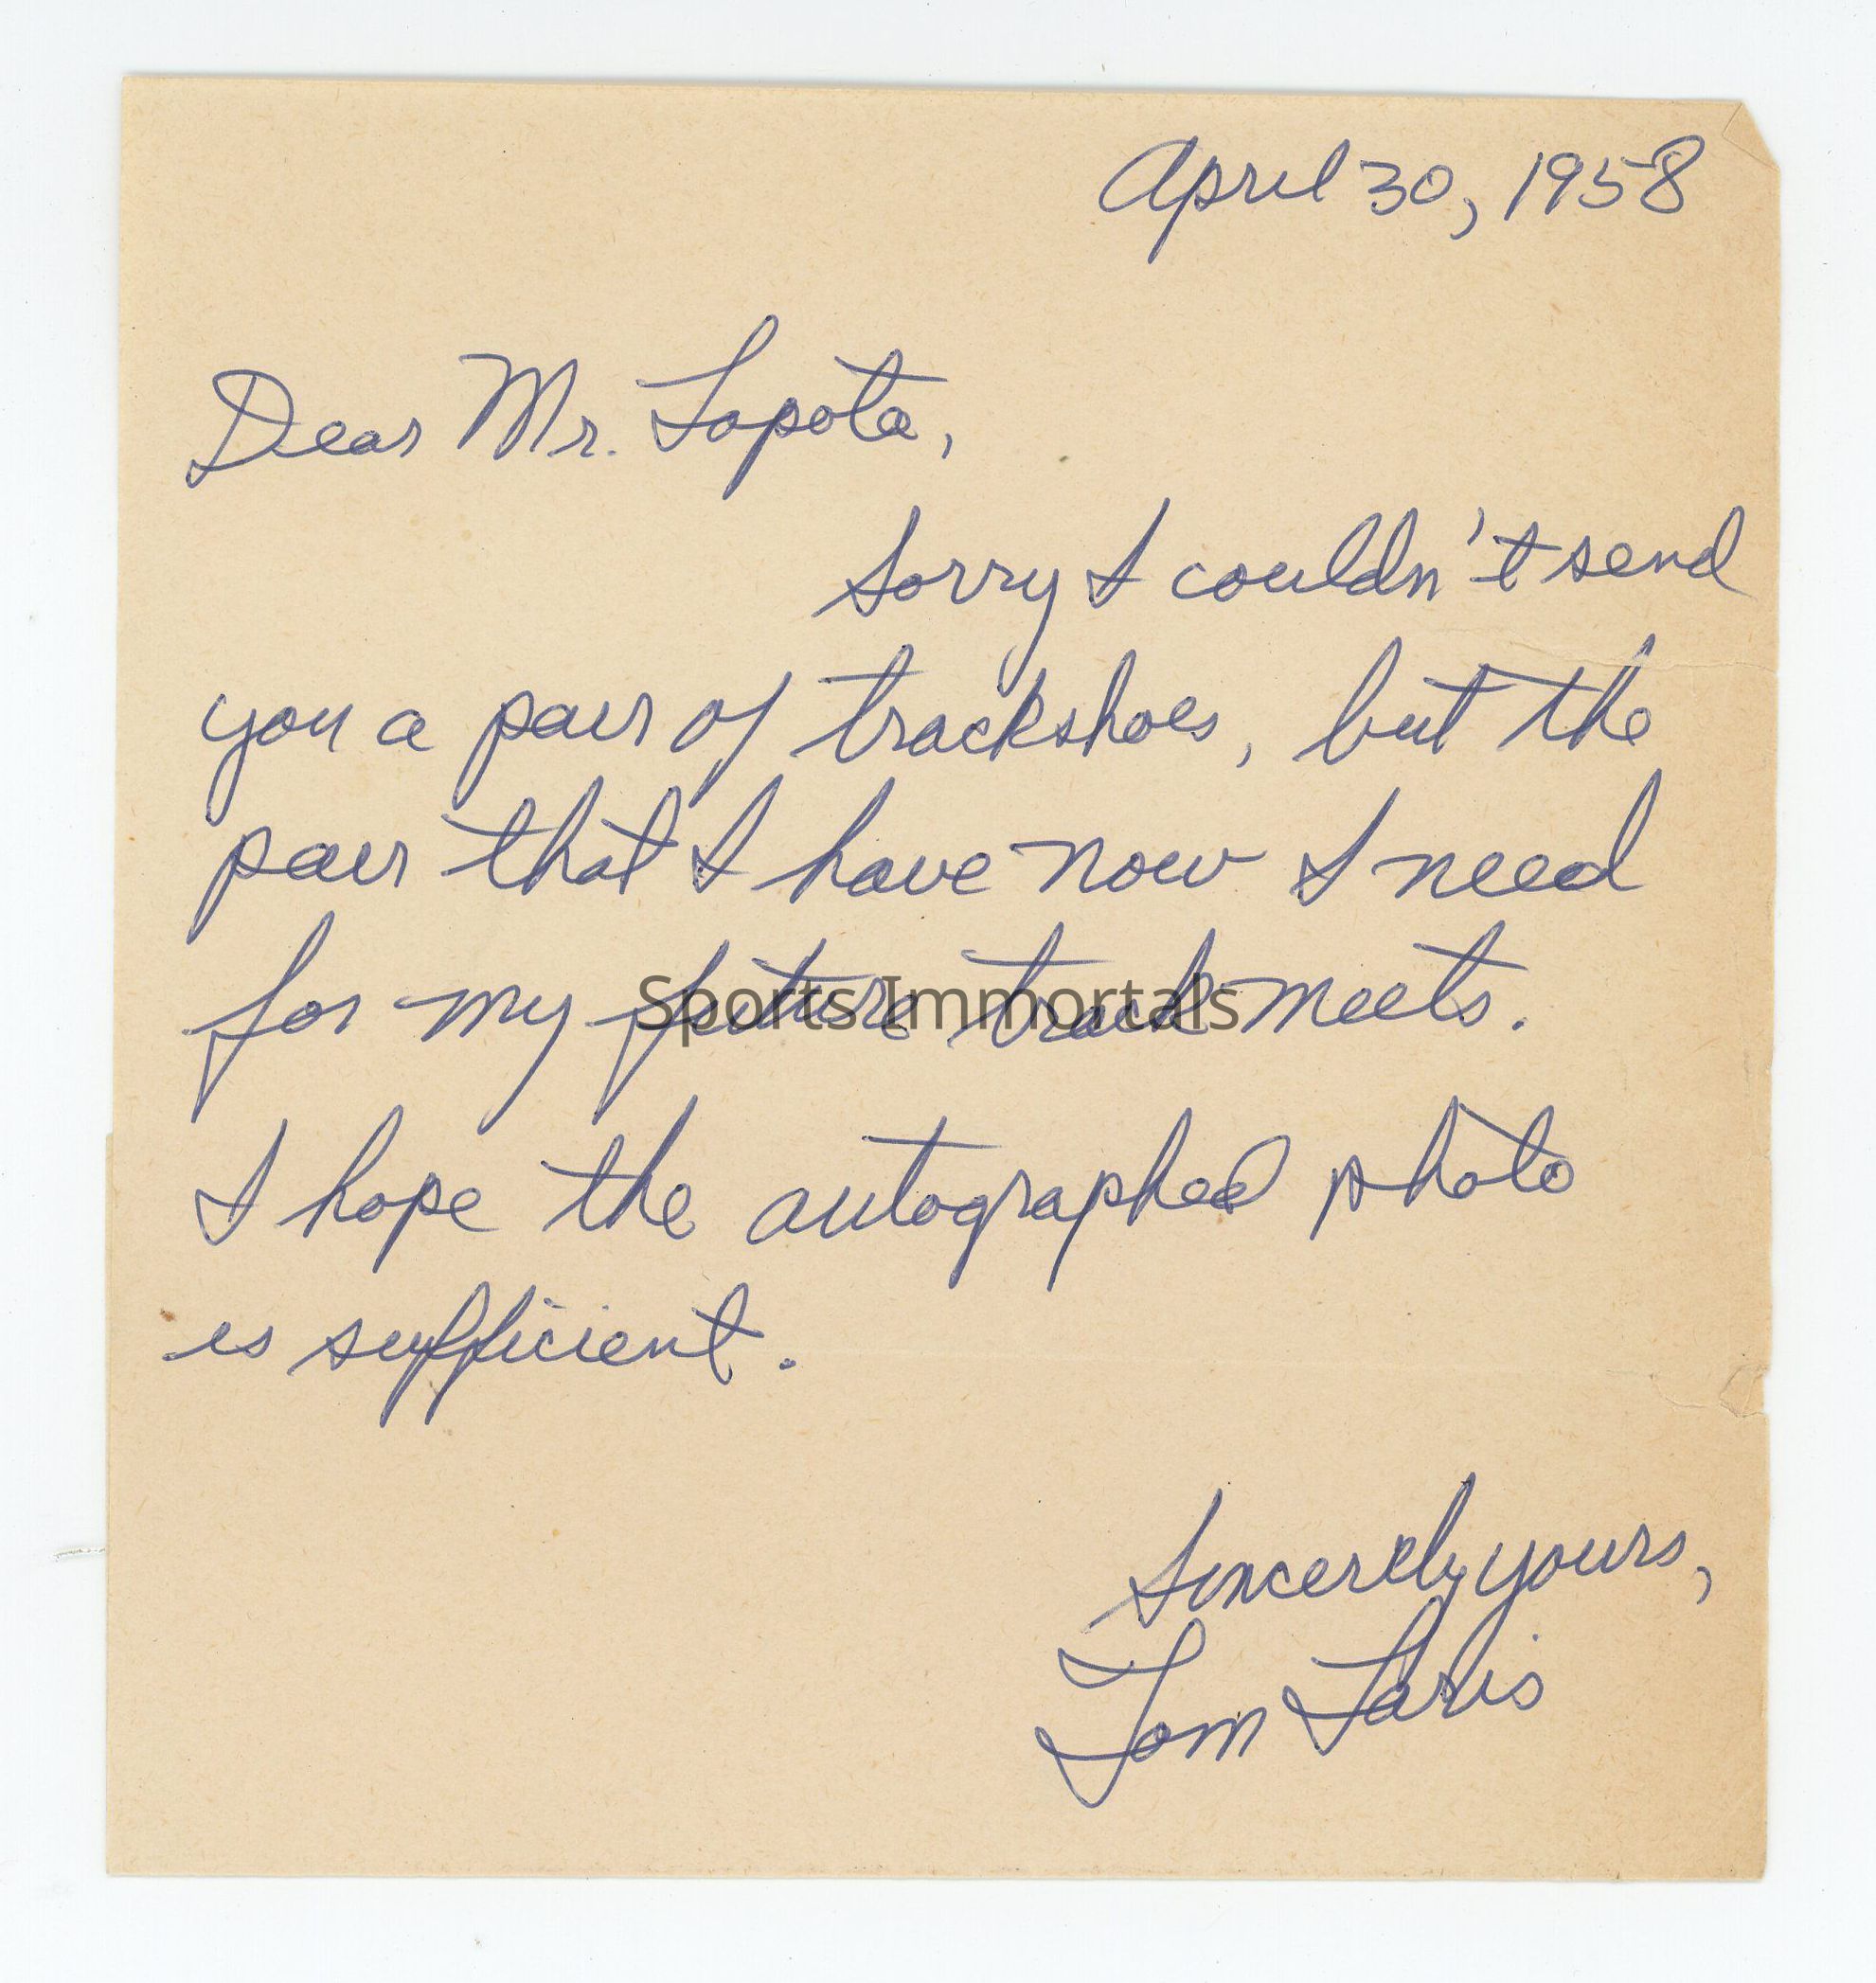 April 30, 1958
Dear Mr. Lapota,
Sorry I couldn't send
you a pair of trackshoes, but the
pair that I have now I need
for my future track meets.
Sports Immortals
I hope the autographed photo
is sufficient.
Sincerely yours,
Tom Laris